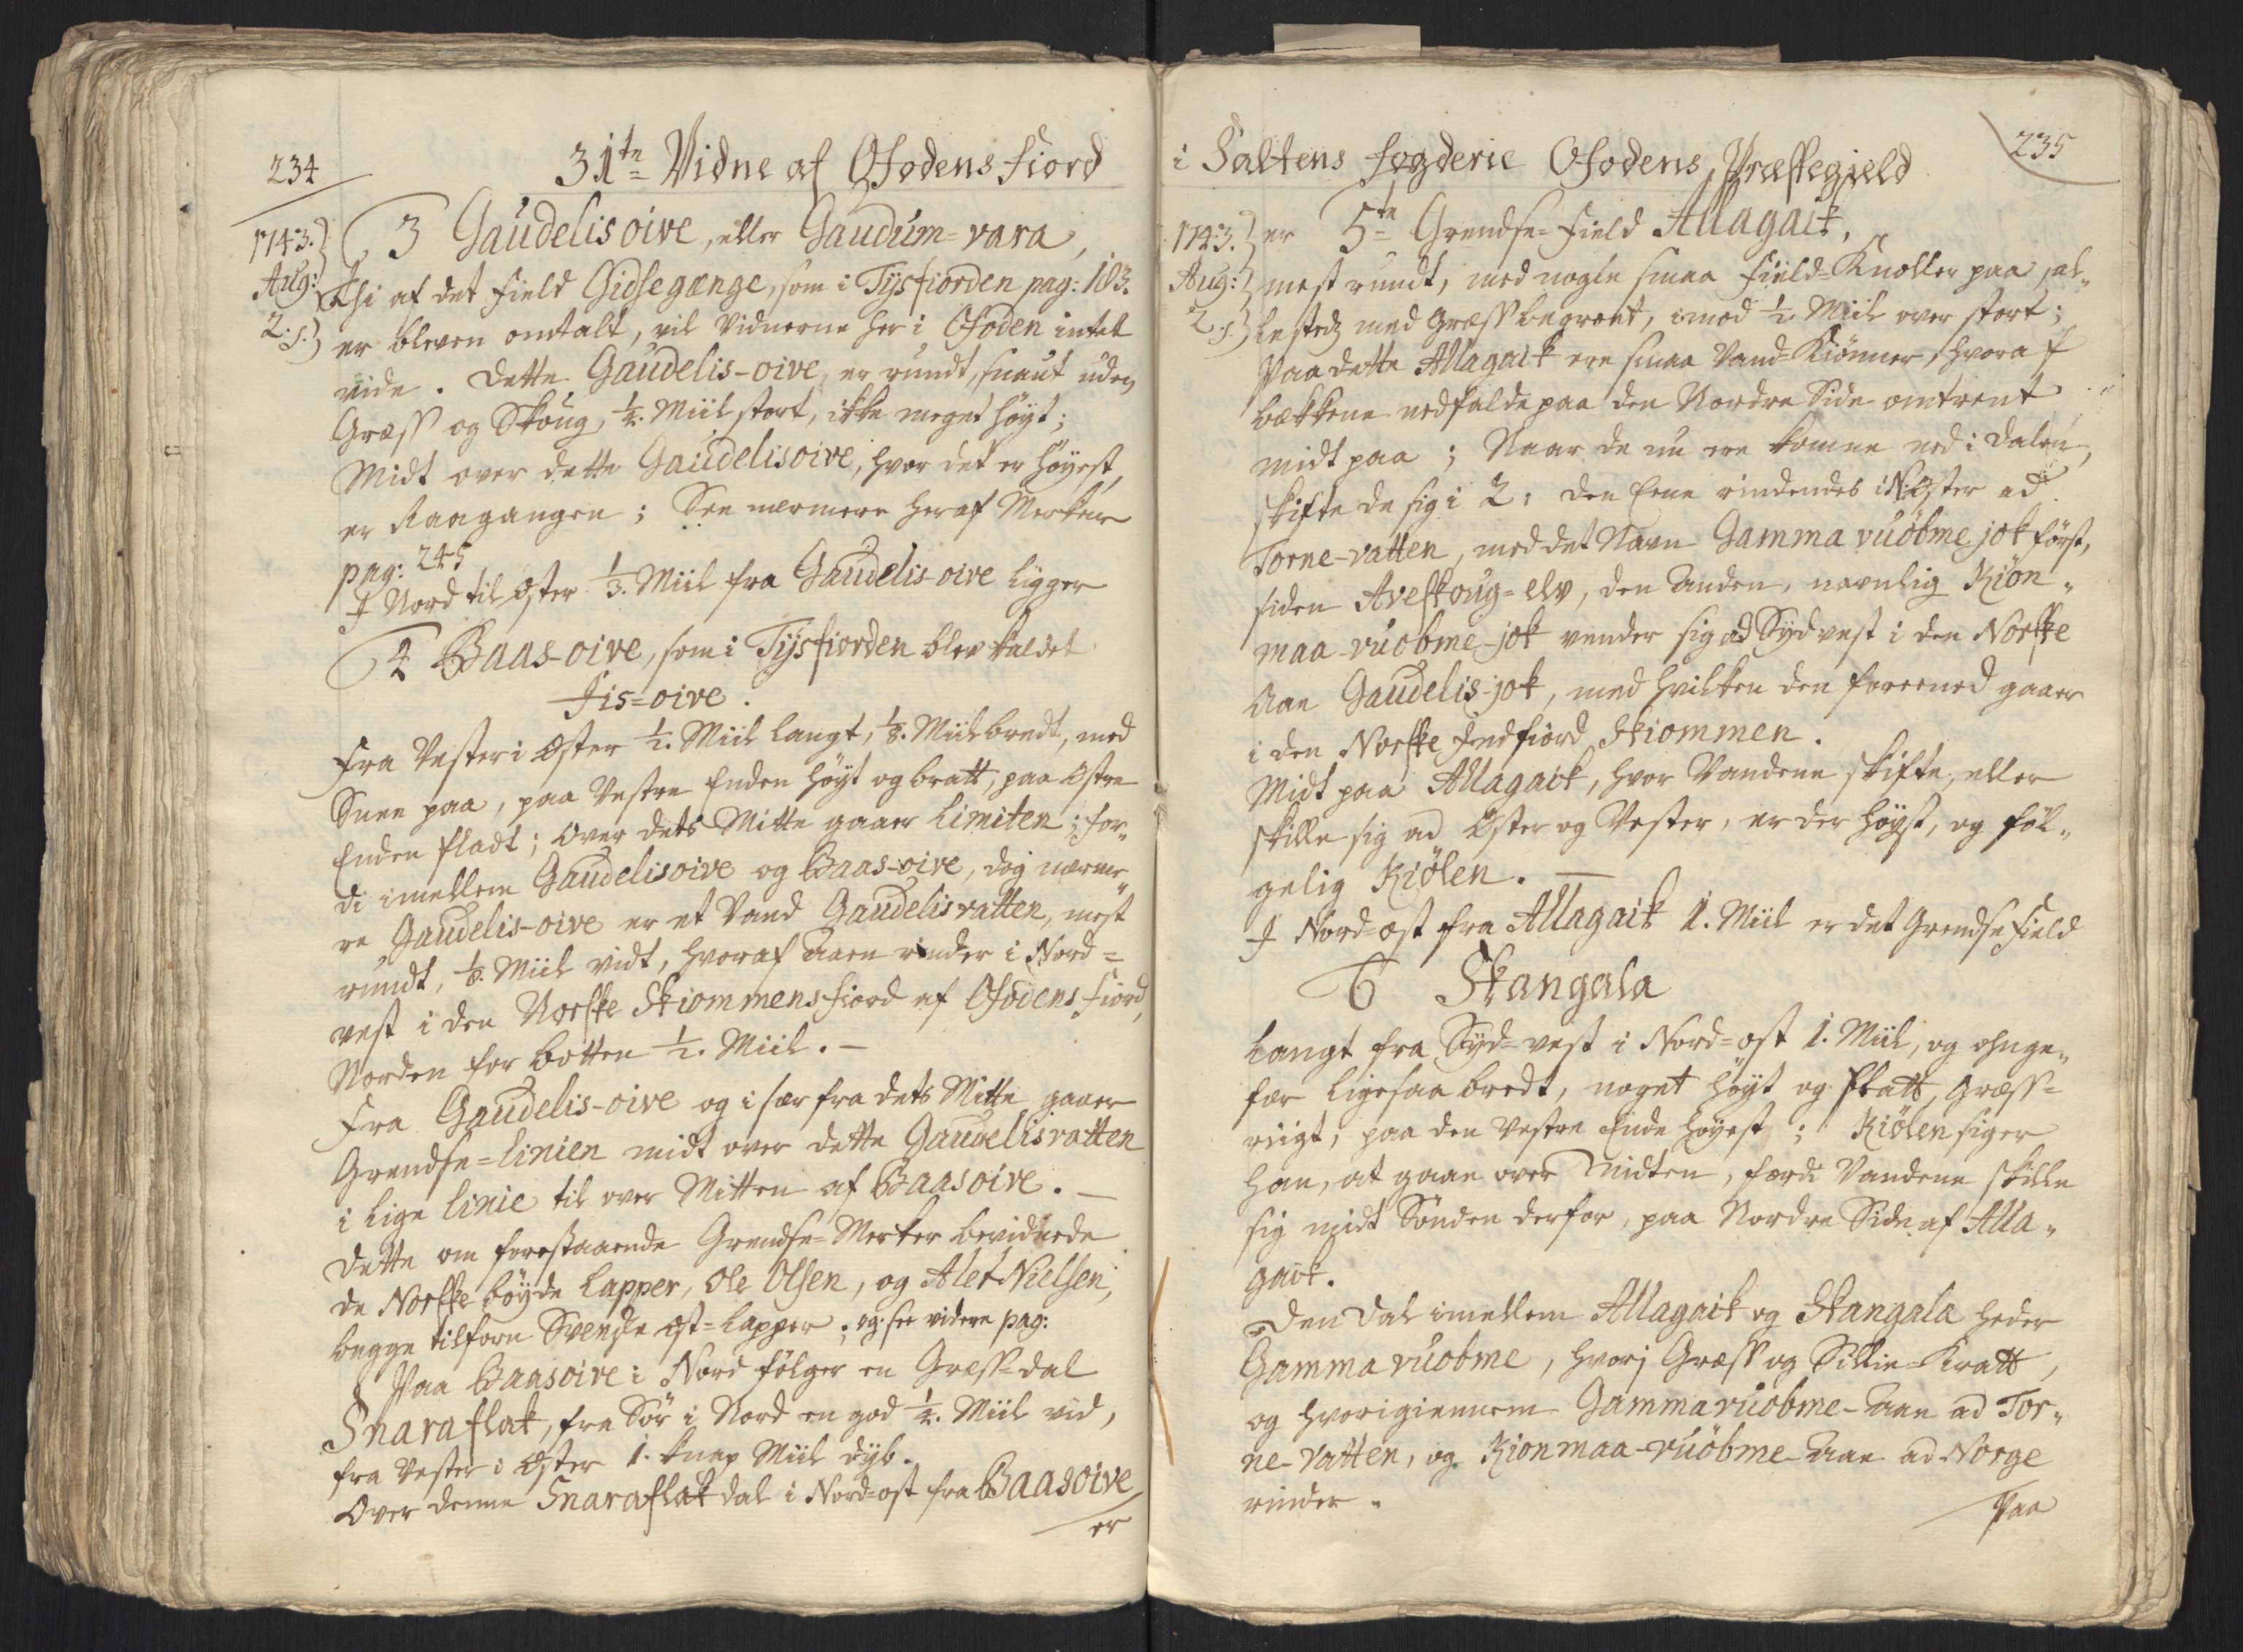 234
31te Vidne af Ofodens Fiord
1743.
Aug:
2. s:
3 Gaudelis oive, eller Gaudum-vara,
Thi af det field Gidsegænge, som i Tysfiorden pag: 183.
er bleven omtalt, vil Vidnerne her i Ofoden intet
vide. Dette Gaudelis-oive, er rundt, snaut uden
Græss og Skoug, 1/2. Miil stort, ikke meget höyt;
Midt over dette Gaudelisoive, hvor det er höyest,
er Raagangen; See nærmere heraf Merker
pag: 245
I Nord til Oster 1/3. Miil fra Gaudelis-oive ligger
4 Baas-oive, som i Tysfiorden blev kaldet
Jis-oive.
Fra Vester i Oster 1/2. Miil langt, 1/8. Miil bredt, med
Snee paa, paa Vestre Enden höyt og bratt, paa Ostre
Enden fladt; Over dets Mitte gaaer Limiten; for-
di imellem Gaudelisoive og Baas-oive, dog nærme-
re Gaudelis-oive er et Vand Gaudelisvatten, mest
rundt, 1/8. Miil vidt, hvoraf Aaen rinder i Nord-
vest i den Norske Skiommensfiord af Ofodens fiord,
Norden for botten 1/2. Miil. —
Fra Gaudelis-oive og i sær fra dets Mitte gaaer
Grendse-linien midt over dette Gaudelisvatten
i lige linie til over Mitten af Baasoive. —
Dette om forestaaende Grendse-Merker bevidnede
de Norske böyde Lapper, Ole Olsen, og Alet Nielsen,
begge tilforn Svenske Ost-Lapper; og see videre pag:
Paa Baasoive i Nord fölger en Græss-dal
Snaraflak, fra Sör i Nord en god 1/2. Miil vid,
fra Vester i Oster 1. knap Miil dyb.
Over denne Snaraflak dal i Nord-ost fra Baasoive
er
i Saltens fogderie Ofodens Præstegield
235
1743.
Aug:
2. s:
er 5te Grendse-Field Allagaik,
mest rundt, med nogle smaa Field-Knoller paa, al-
lesteds med Græss begroet, imod 1/2. Miil over stort;
Paa dette Allagaik ere smaa Vand-Kiönner, hvoraf
bækkene nedfalde paa den Nordre Side omtrent
midt paa; Naar de nu ere komne ned i Dalen,
skifte de sig i 2: den Eene rindendes i N: Oster ad
Torne-vatten, med det Navn Gamma vuöbme jok först,
siden Aveskoug-elv, den Anden, navnlig Kiön-
maa-vuobme-jok vender sig ad Sydvest i den Norske
Aan Gaudelis-jok, med hvilken den foreened gaaer
i den Norske Indfiord Skiommen.
Midt paa Allagaik, hvor Vandene skifte, eller
skille sig ad Oster og Vester, er der höyst, og föl-
gelig Kiölen. —
I Nord-ost fra Allagaik 1. Miil er det Grendsefield
6 Skangala
Langt fra Syd-vest i Nord-ost 1. Miil, og ohnge-
fær ligesaa bredt, noget höyt og flatt, Græss-
riigt, paa den Vestre Ende höyest; Kiölen siger
han, at gaae over Midten, fordi Vandene skille
sig midt Sönden derfor, paa Nordre Side af Alla-
gaik.
Den Dal imellem Allagaik og Skangala heder
Gamma vuobme, hvorj Græss og Sillie-Kratt,
og hvorigiennem Gammavuobme-Aan ad Tor-
ne-vatten, og Kionmaa-vuöbme-Aan ad Norge
rinder.
Paa